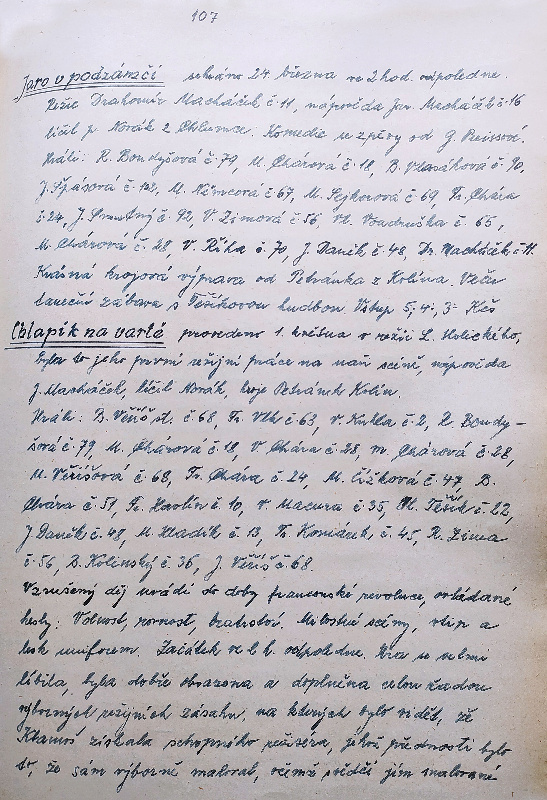 107
Jaro v podzámčí sehráno 24. března ve 2 hod. odpoledne.
Režie Drahomír Macháček č. 11, nápověda Jar. Macháček č. 16
líčil p. Novák z Chlumce. Komedie se zpěvy od G. Preissové.
Hráli: R. Bondyšová č. 79, M. Chárová č. 18, B. Vlasáková č. 90,
J. Spasová č. 102, M. Němcová č. 67, M. Sejkorová č. 69, Fr. Chára
č. 24, J. č. 92, V. Zimová č. 56, Vl. Vondruška č. 65,
M. Chárová č. 28, V. Říha č. 70, J. Daněk č. 48, Dr. Macháček č. 11.
Krásná krojová výprava od Petránka z Kolína. Večer
taneční zábava s Tešíkovou hudbou. Vstup 5,- 4,- 3,- Kčs
Chlapík na vartě provedeno 1. května v režii L. Holického,
byla to jeho první režijní práce na naší scéně, nápověda
J. Macháček, líčil Novák, kroje Petránek Kolín.
Hráli: B. Veříš st. č. 68, Fr. Vlk č. 63, V. Kukla č. 2, R. Bondy-
šová č. 79, M. Chárová č. 18, V. Chára č. 28, M. Chárová č. 28,
M. Veříšová č. 68, Fr. Chára č. 24, M. Čížková č. 47, B.
Chára č. 51, Fr. Havlín č. 10, V. Macura č. 35, Ol. Tešík č. 22,
J. Daněk č. 48, M. Hladík č. 13, Fr. Komárek č. 45, R. Zima
č. 56, B. Kolínský č. 36, J. Veříš č. 68.
Vzrušený děj uvádí do doby francouzské revoluce, ovládané
hesly: Volnost, rovnost, bratrství. Milostné scény, vtip a
lesk uniforem. Začátek ve 2 h. odpoledne. Hra se velmi
líbila, byla dobře obsazena a doplněna celou řadou
výborných režijních zásahů, na kterých bylo vidět, že
Klamoš získala schopného režiséra, jehož předností bylo
to, že sám výborně maloval, o čemž svědčí jím malované